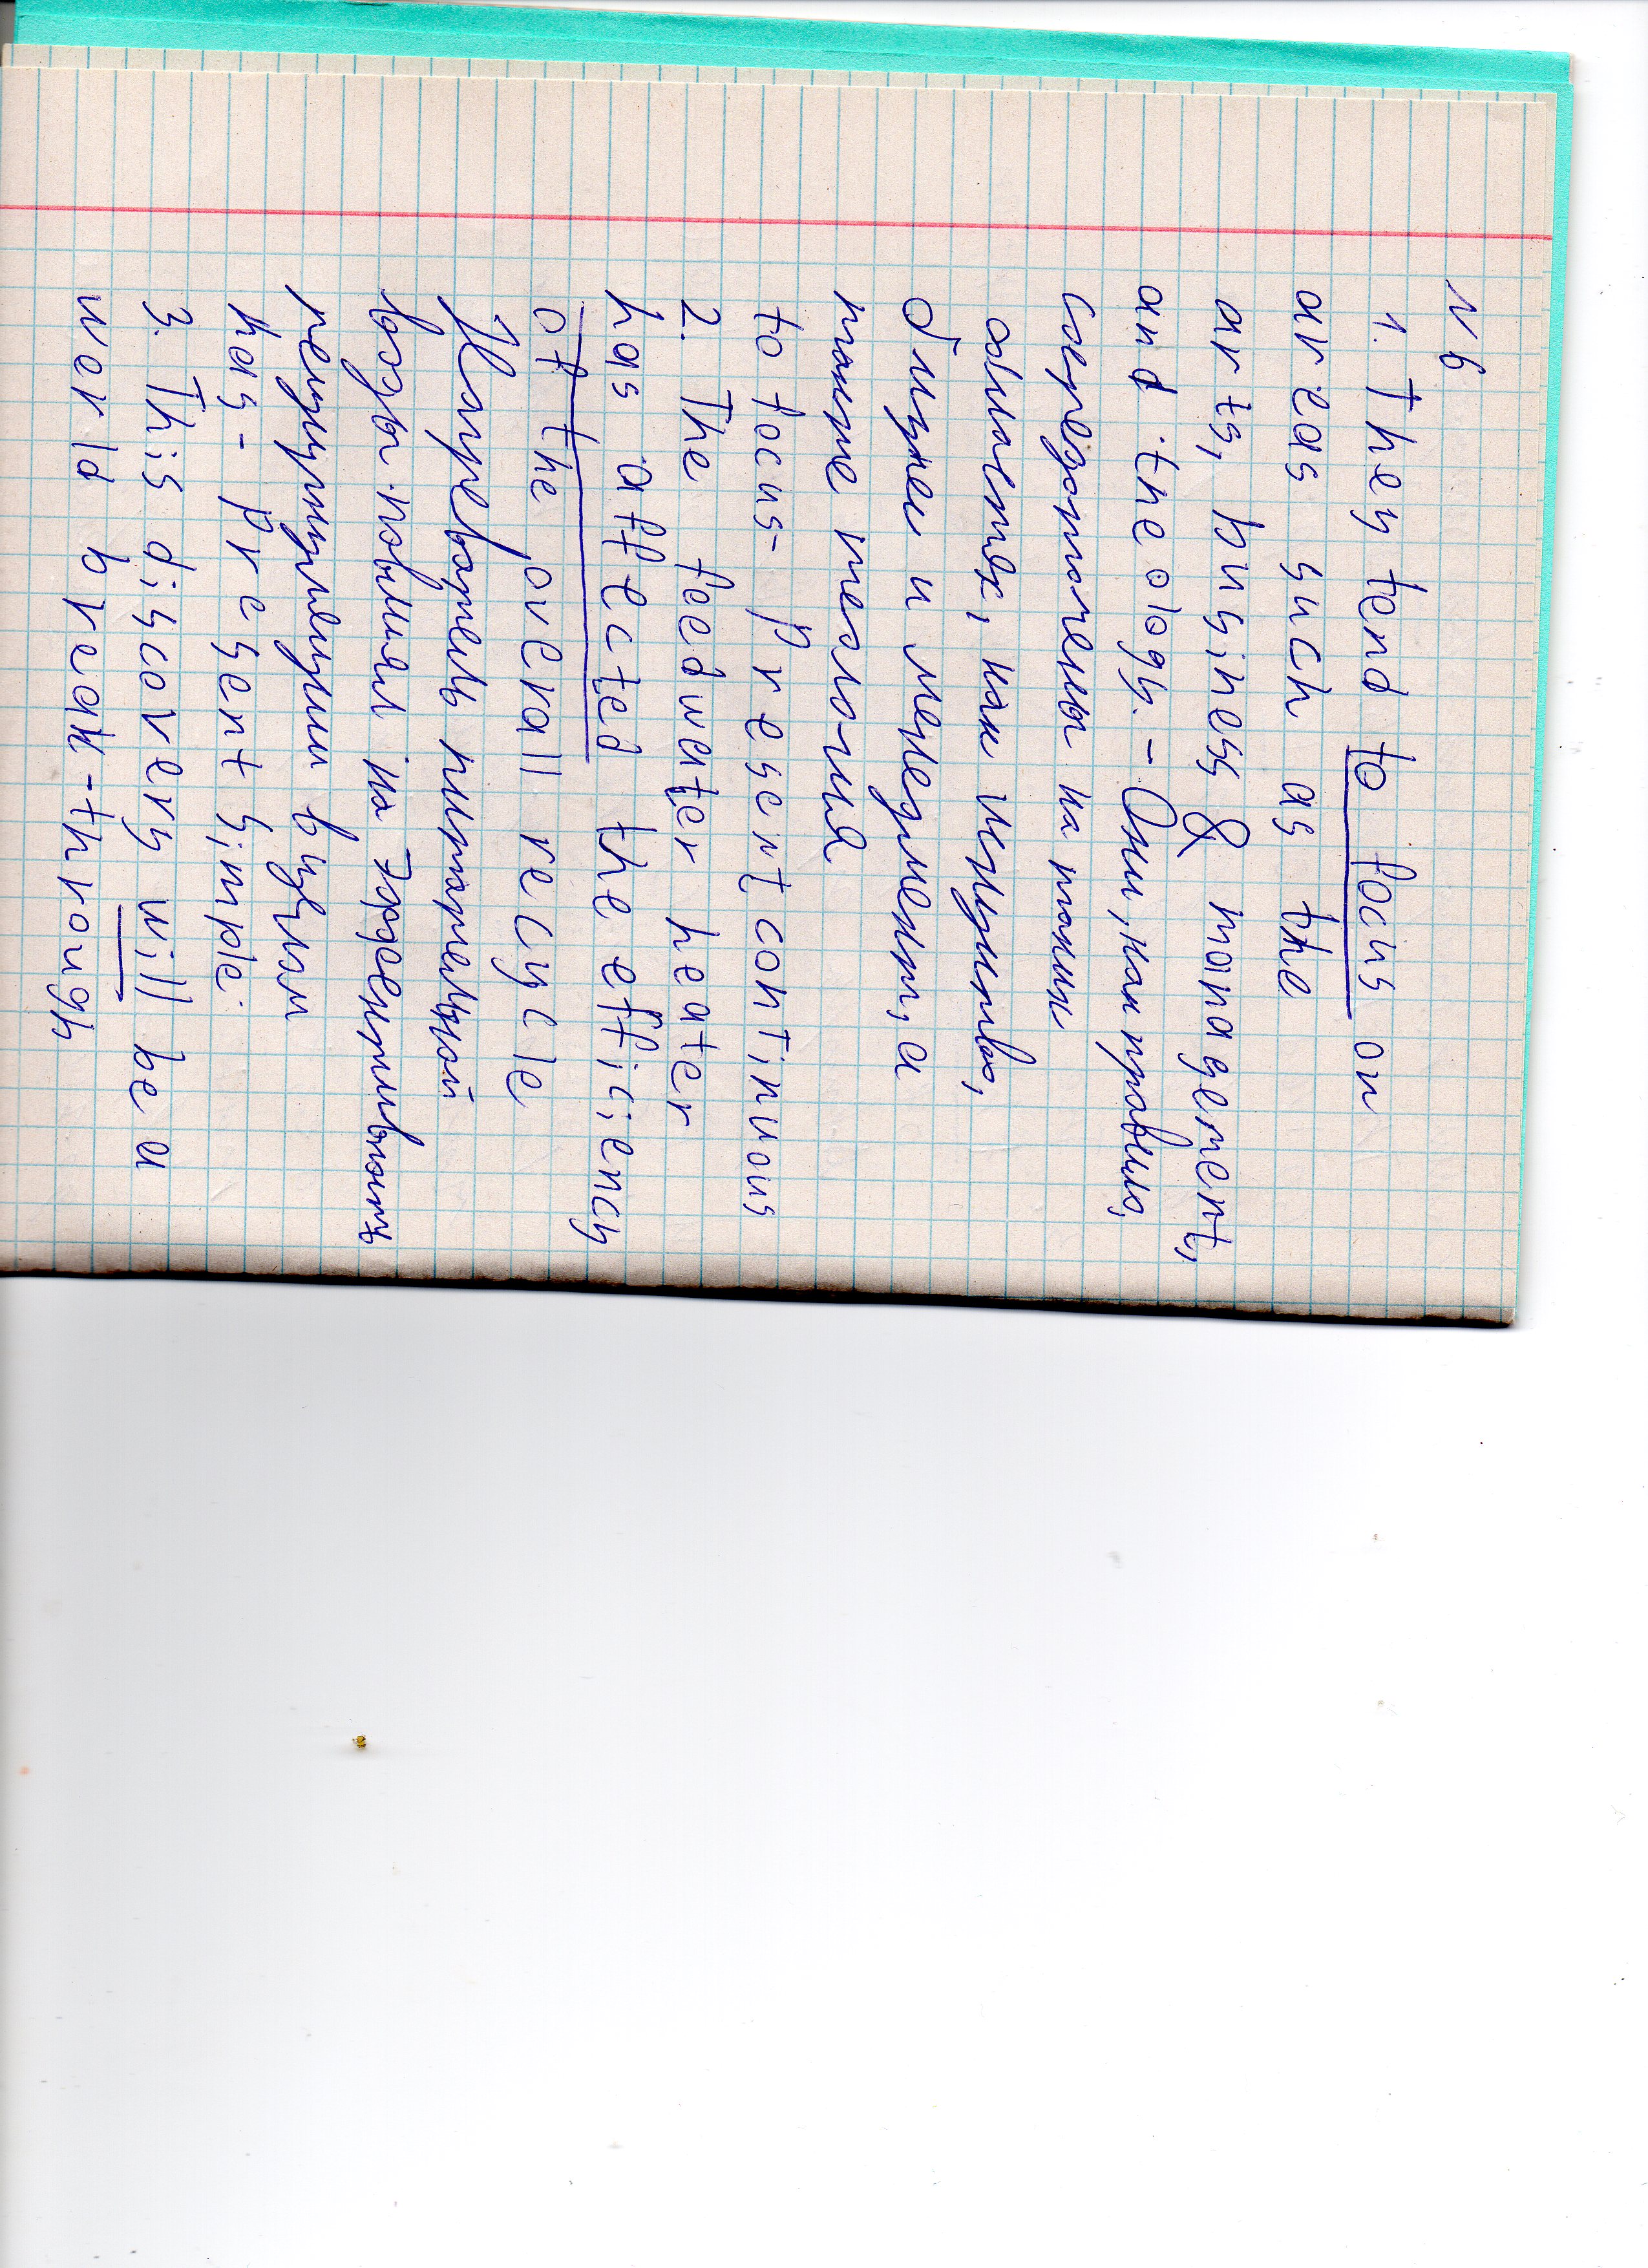 N6
1. They tend to focus on
areas such as the
arts, business & management,
and theology. - Они, как правило,
сосредоточены на таких
областях, как искусство,
бизнес и менеджмент, а
также теология
to focus - present continuous
2. The feedwater heater
has affected the efficiency
of the overall recycle
Подогреватель питательной
воды повлиял на эффективность
рециркуляции в целом
has - present simple
3. This discovery will be a
world break-through